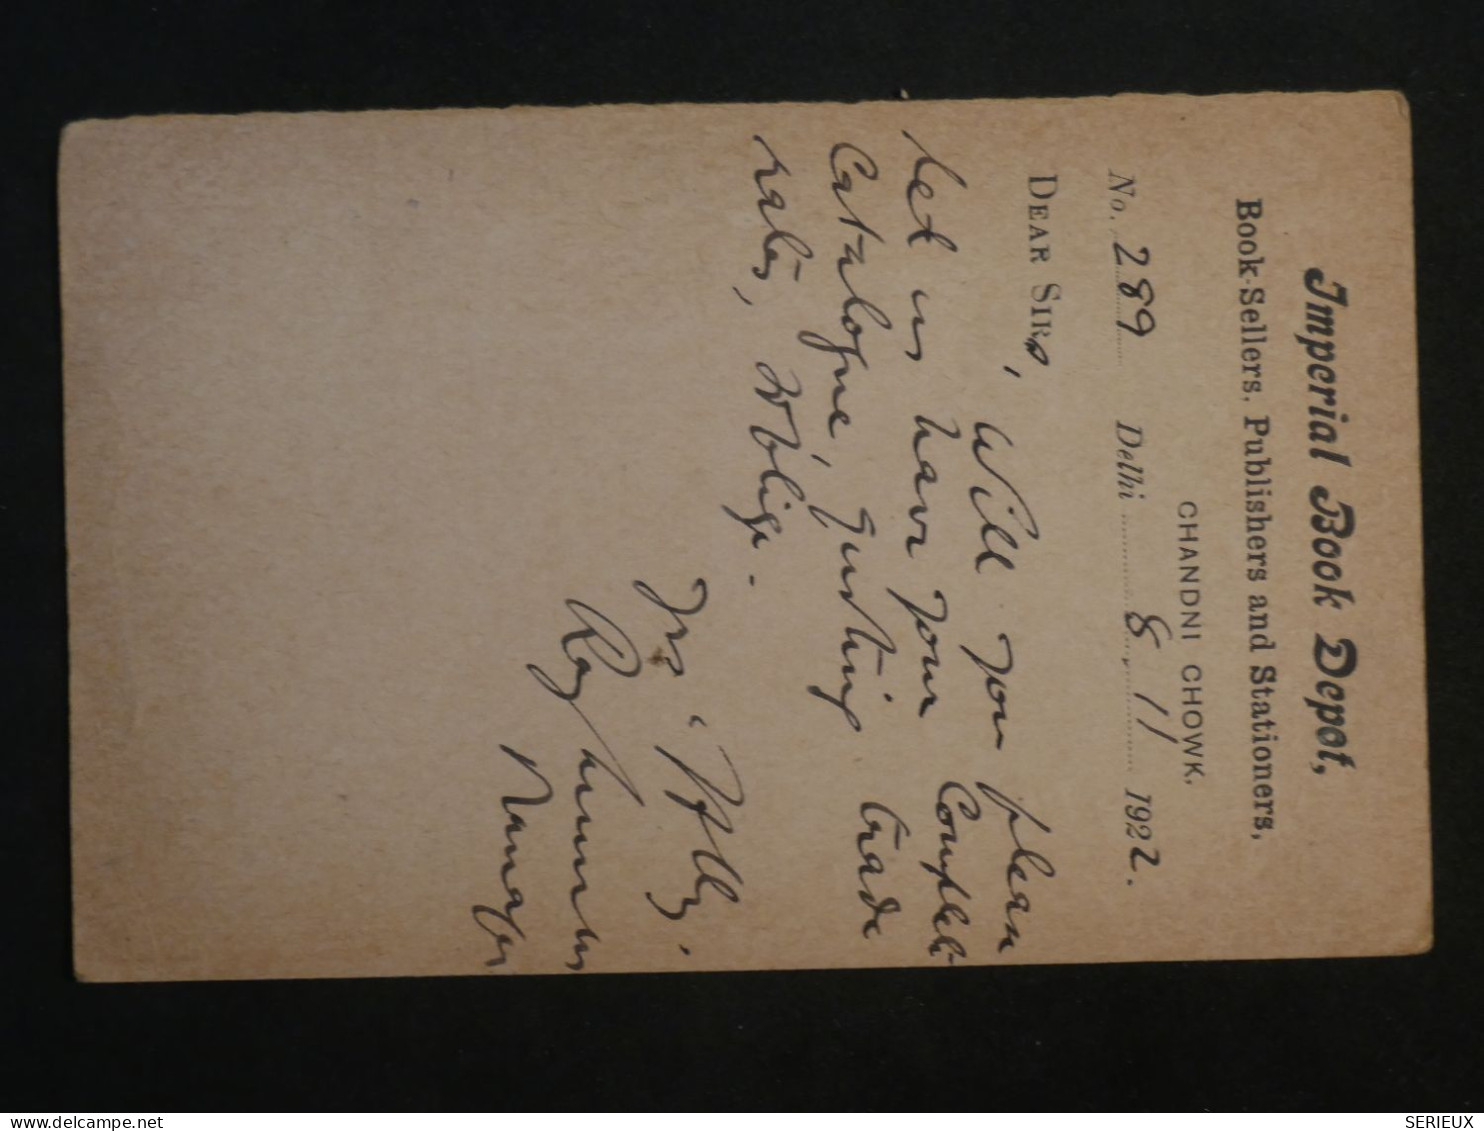 Imperial Book Depot,
Book-Sellers, Publishers and Stationers,
CHANDNI CHOWK.
No. 289 Delhi 8 11 1922.
DEAR SIRs,
Will you please
let us have your Complete
Catalogue, quoting trade
rates, & oblige.
Yrs. Ffly.
Manager
delcampe.net
SERIEUX